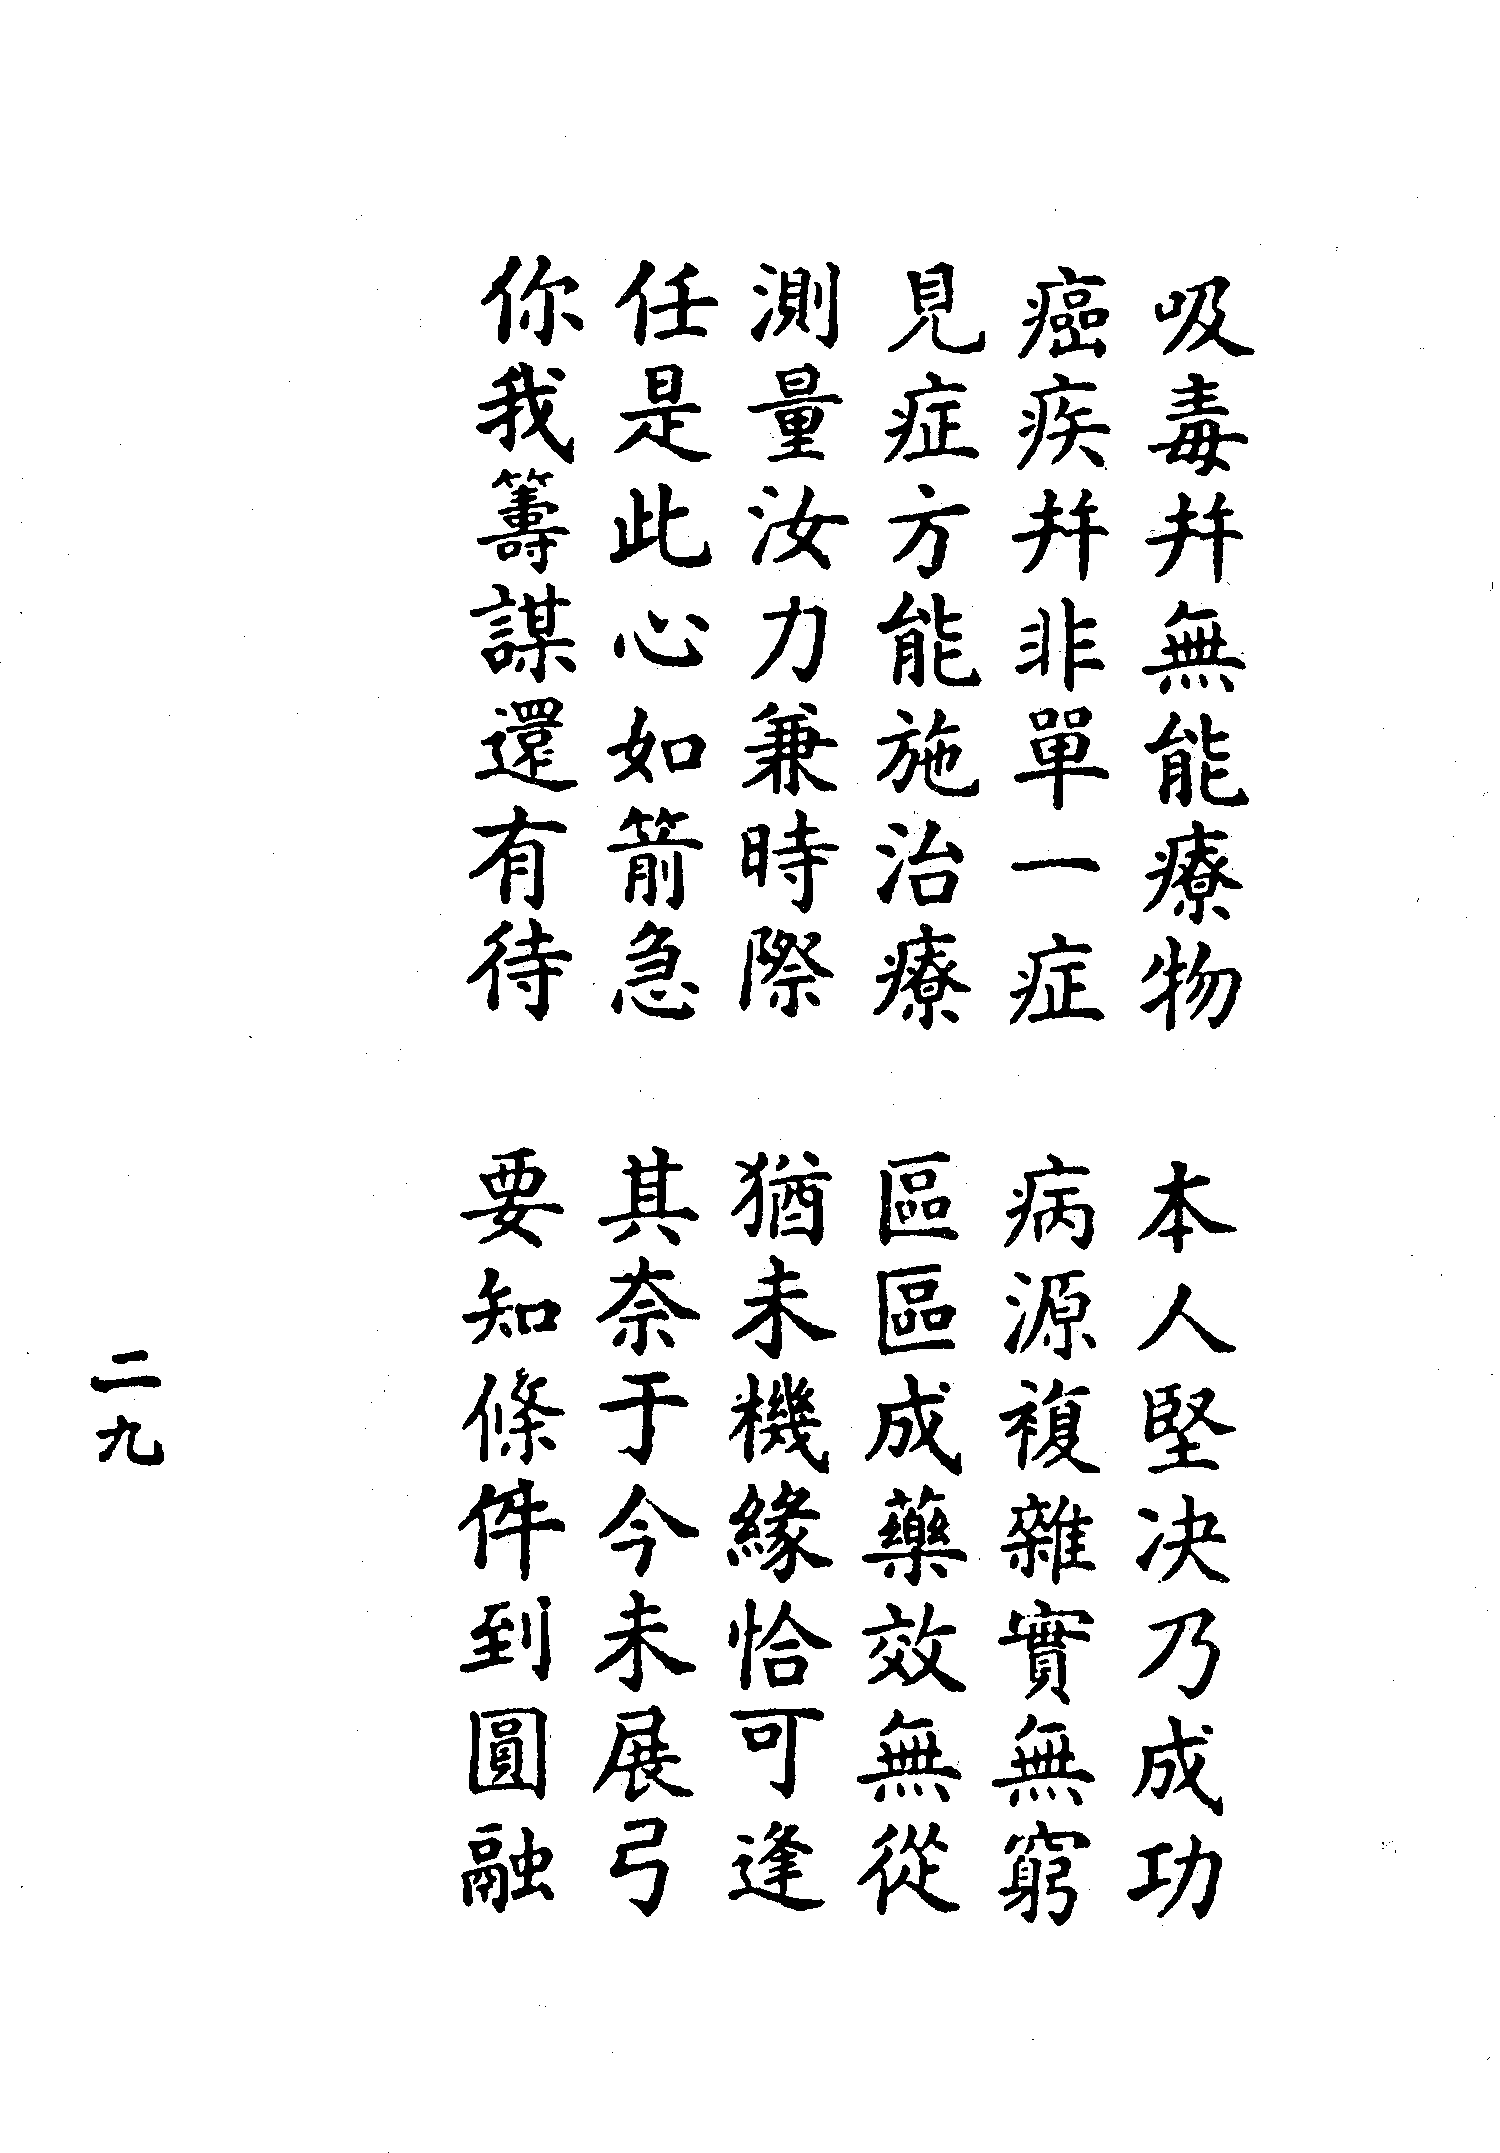 吸毒幷無能療物　本人堅决乃成功
癌疾幷非單一症　病源複雜實無窮
見症方能施治療　區區成藥效無從
測量汝力兼時際　猶未機緣恰可逢
任是此心如箭急　其奈于今未展弓
你我籌謀還有待　要知條件到圓融
二九